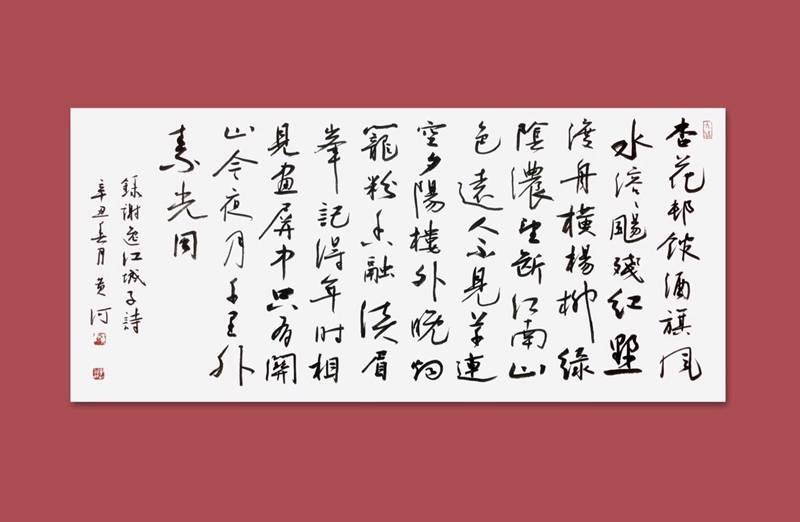 杏花邨館酒旗風
水溶々颺殘紅野
渡舟橫楊柳綠
陰濃望斷江南山
色遠人不見草連
空夕陽樓外晚烟
籠粉香融淡眉
峯記得年时相
見畫屏中只有關
山今夜月千里外
素光同
錄謝逸江城子詩
辛丑春月黄河